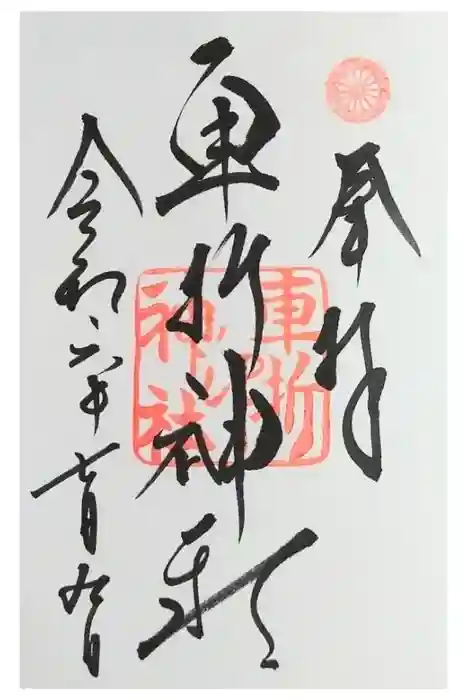 奉拝
車折神社
令和六年七月九日
車折
神社